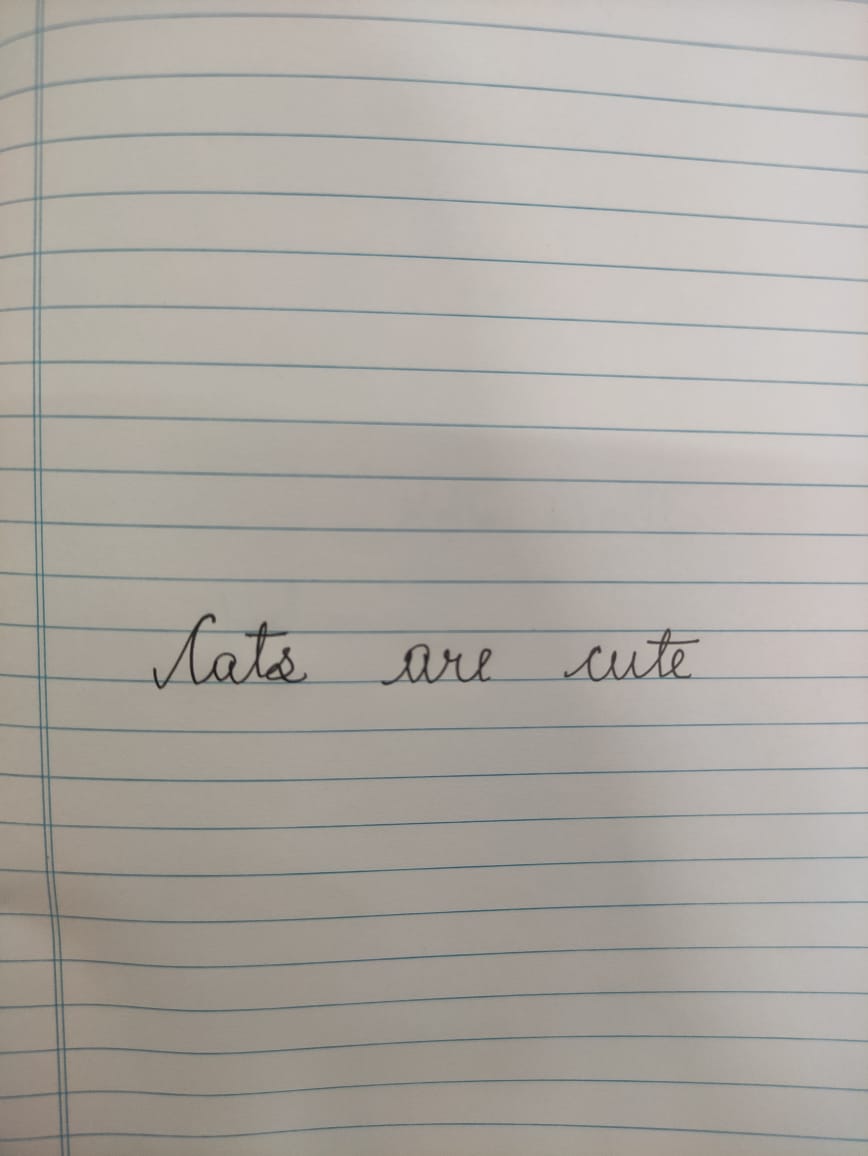 Cats are cute